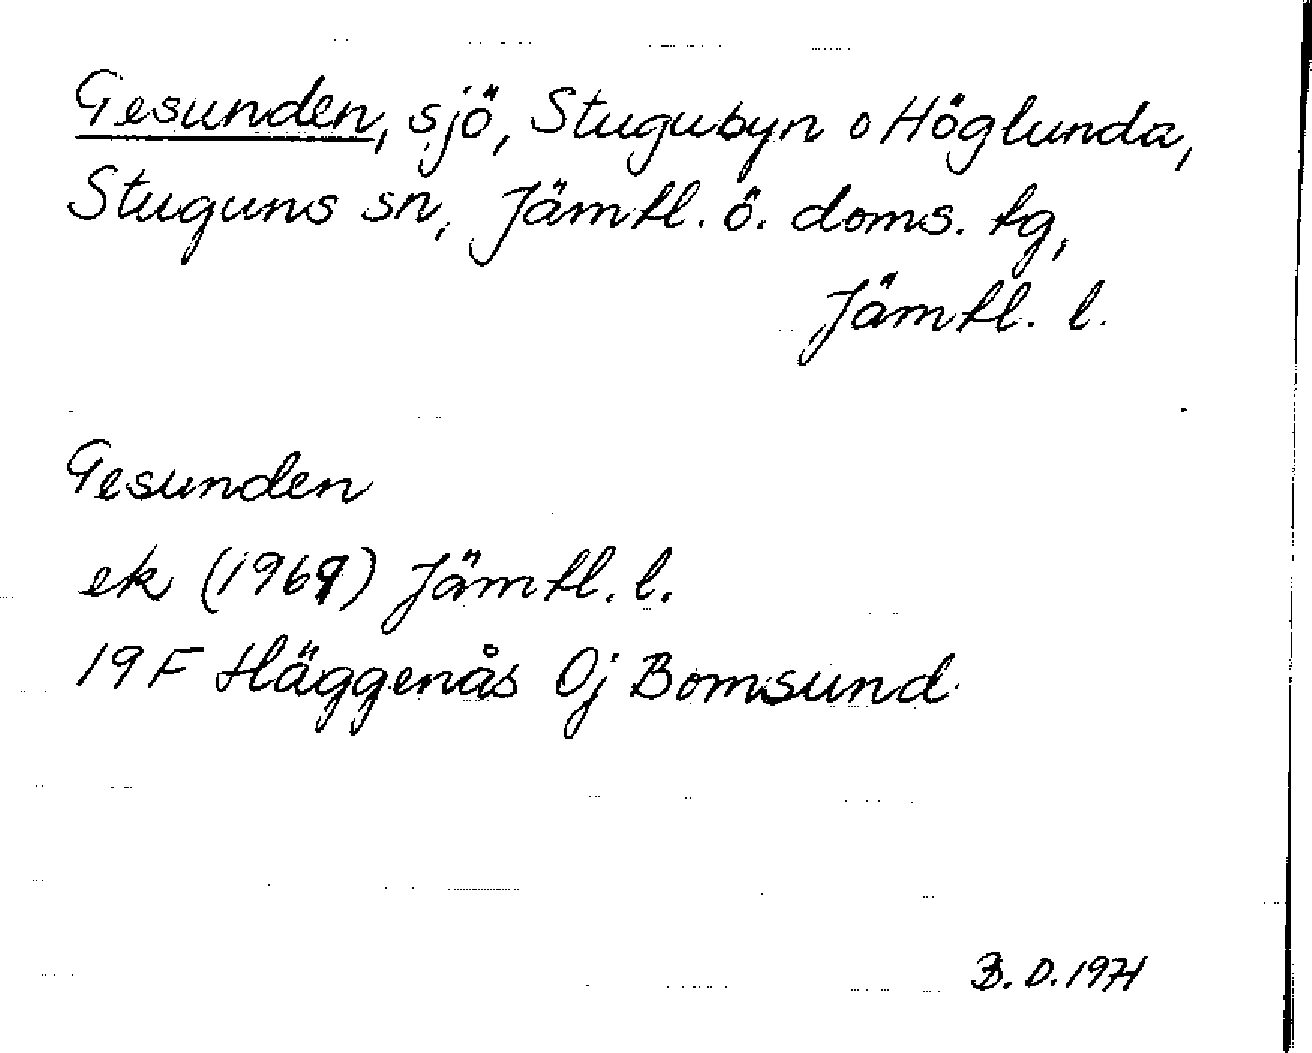 Gesunden, sjö, Stugubyn o Höglunda,
Stuguns sn, Jämtl. ö. doms. tg,
Jämtl. l.
Gesunden
ek (1969) Jämtl. l.
19 F Häggenås Oj Bomsund
B. D. 1971